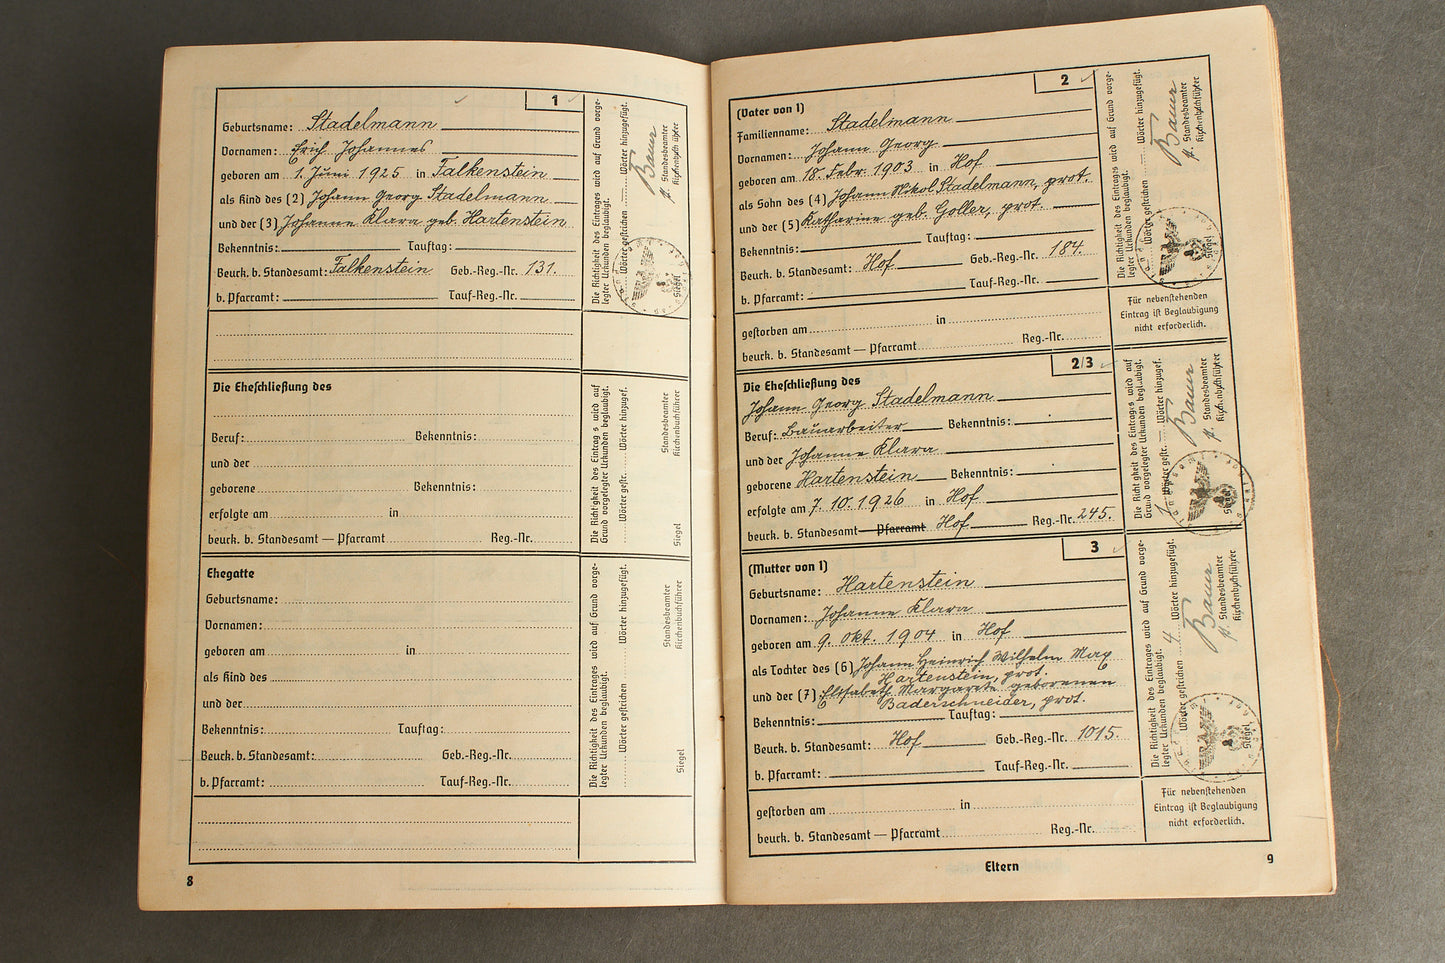 1
Geburtsname: Stadelmann
Vornamen: Erich Johannes
geboren am 1. Juni 1925 in Falkenstein
als Kind des (2) Johann Georg Stadelmann
und der (3) Johanne Klara geb. Hartenstein
Bekenntnis: Tauftag:
Beurk. b. Standesamt: Falkenstein Geb.-Reg.-Nr. 131.
b. Pfarramt: Tauf-Reg.-Nr.
Die Richtigkeit des Eintrages wird auf Grund vorge-
legter Urkunden beglaubigt.
Wörter gestrichen Wörter hinzugefügt.
Bauer
Standesbeamter
Siegel
Die Eheschließung des
Beruf: Bekenntnis:
und der
geborene Bekenntnis:
erfolgte am in
beurk. b. Standesamt — Pfarramt Reg.-Nr.
Die Richtigkeit des Eintrag s wird auf
Grund vorgelegter Urkunden beglaubigt.
Wörter gestr. Wörter hinzugef.
Standesbeamter
Kirchenbuchführer
Siegel
Ehegatte
Geburtsname:
Vornamen:
geboren am in
als Kind des
und der
Bekenntnis: Tauftag:
Beurk. b. Standesamt: Geb.-Reg.-Nr.
b. Pfarramt: Tauf-Reg.-Nr.
Die Richtigkeit des Eintrages wird auf Grund vorge-
legter Urkunden beglaubigt.
Wörter gestrichen Wörter hinzugefügt.
Standesbeamter
Kirchenbuchführer
Siegel
8
2
(Vater von 1)
Familienname: Stadelmann
Vornamen: Johann Georg
geboren am 18. Febr. 1903 in Hof
als Sohn des (4) Johann Nikol Stadelmann, prot.
und der (5) Katharine geb. Goller, prot.
Bekenntnis: Tauftag:
Beurk. b. Standesamt: Hof Geb.-Reg.-Nr. 184.
b. Pfarramt: Tauf-Reg.-Nr.
gestorben am in
beurk. b. Standesamt — Pfarramt Reg.-Nr.
Die Richtigkeit des Eintrages wird auf Grund vorge-
legter Urkunden beglaubigt.
Wörter gestrichen Wörter hinzugefügt.
Bauer
Standesbeamter
Kirchenbuchführer
Siegel
Für nebenstehenden
Eintrag ist Beglaubigung
nicht erforderlich.
2/3
Die Eheschließung des
Johann Georg Stadelmann
Beruf: Bauarbeiter Bekenntnis:
und der Johanne Klara
geborene Hartenstein Bekenntnis:
erfolgte am 7. 10. 1926 in Hof
beurk. b. Standesamt — Pfarramt Hof Reg.-Nr. 245.
Die Richtigkeit des Eintrages wird auf
Grund vorgelegter Urkunden beglaubigt.
1 Wörter gestr. — Wörter hinzugef.
Bauer
Standesbeamter
Kirchenbuchführer
Siegel
3
(Mutter von 1)
Geburtsname: Hartenstein
Vornamen: Johanne Klara
geboren am 9. Okt. 1904 in Hof
als Tochter des (6) Johann Heinrich Wilhelm Max
Hartenstein, prot.
und der (7) Elisabeth Margarete geborenen
Baderschneider, prot.
Bekenntnis: Tauftag:
Beurk. b. Standesamt: Hof Geb.-Reg.-Nr. 1015.
b. Pfarramt: Tauf-Reg.-Nr.
gestorben am in
beurk. b. Standesamt — Pfarramt Reg.-Nr.
Die Richtigkeit des Eintrages wird auf Grund vorge-
legter Urkunden beglaubigt.
Wörter gestrichen 4 Wörter hinzugefügt.
Bauer
Standesbeamter
Kirchenbuchführer
Siegel
Für nebenstehenden
Eintrag ist Beglaubigung
nicht erforderlich.
Eltern
9